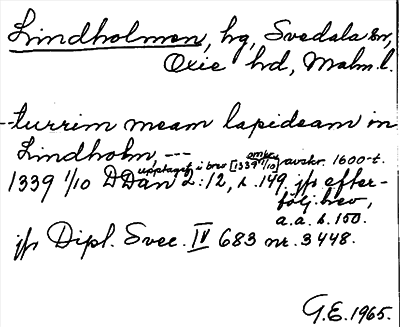 Lindholmen, hg, Svedala sn,
Oxie hd, Malm. l.
--turrim meam lapideam in
Lindholm, ---
upptaget i brev [1339 1/10] avskr. 1600-t.
1339 1/10 DDan 2:12, s. 149. jfr efter-
följ. brev,
a.a. s. 150.
jfr Dipl. Svec. IV 683 nr. 3448.
G.E. 1965.